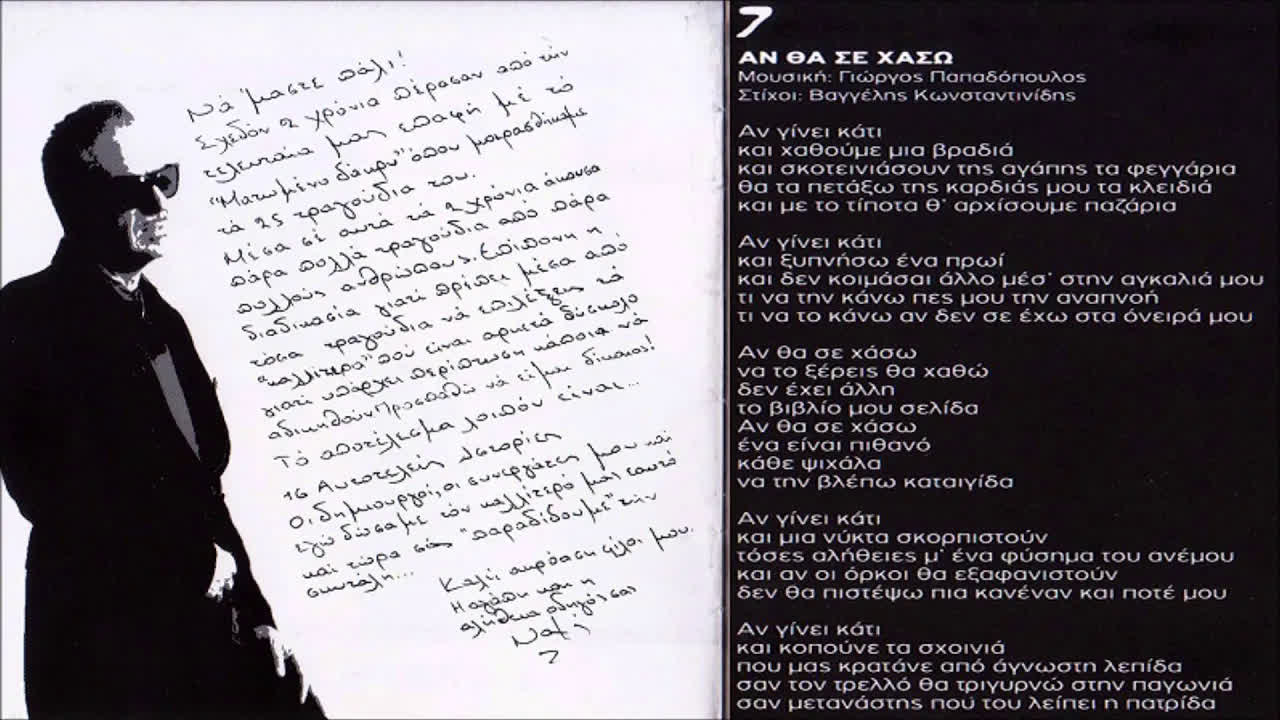 Νά 'μαστε πάλι!
Σχεδόν 2 χρόνια πέρασαν από τήν
τελευταία μας επαφή μέ τό
"Ματωμένο δάκρυ" όπου μοιρασθήκαμε
τά 25 τραγούδια του.
Μέσα σέ αυτά τά 2 χρόνια άκουσα
πάρα πολλά τραγούδια από πάρα
πολλούς ανθρώπους. Επίπονη η
διαδικασία γιατί πρέπει μέσα από
τόσα τραγούδια νά επιλέξεις τά
"καλλίτερα" πού είναι αρκετά δύσκολο
γιατί υπάρχει περίπτωση κάποια νά
αδικηθούν. Προσπαθώ νά είμαι δίκαιος!
Τό αποτέλεσμα λοιπόν είναι...
16 Αυτοτελείς Ιστορίες
Οι δημιουργοί, οι συνεργάτες μου καί
εγώ δώσαμε τόν καλλίτερό μας εαυτό
καί τώρα σάς "παραδίδουμε" τήν
σκυτάλη...
Καλή ακρόαση φίλοι μου.
Η αγάπη και η
αλήθεια οδηγός σας
7
ΑΝ ΘΑ ΣΕ ΧΑΣΩ
Μουσική: Γιώργος Παπαδόπουλος
Στίχοι: Βαγγέλης Κωνσταντινίδης
Αν γίνει κάτι
και χαθούμε μια βραδιά
και σκοτεινιάσουν της αγάπης τα φεγγάρια
θα τα πετάξω της καρδιάς μου τα κλειδιά
και με το τίποτα θ' αρχίσουμε παζάρια
Αν γίνει κάτι
και ξυπνήσω ένα πρωί
και δεν κοιμάσαι άλλο μέσ' στην αγκαλιά μου
τι να την κάνω πες μου την αναπνοή
τι να το κάνω αν δεν σε έχω στα όνειρά μου
Αν θα σε χάσω
να το ξέρεις θα χαθώ
δεν έχει άλλη
το βιβλίο μου σελίδα
Αν θα σε χάσω
ένα είναι πιθανό
κάθε ψιχάλα
να την βλέπω καταιγίδα
Αν γίνει κάτι
και μια νύκτα σκορπιστούν
τόσες αλήθειες μ' ένα φύσημα του ανέμου
και αν οι όρκοι θα εξαφανιστούν
δεν θα πιστέψω πια κανέναν και ποτέ μου
Αν γίνει κάτι
και κοπούνε τα σχοινιά
που μας κρατάνε από άγνωστη λεπίδα
σαν τον τρελλό θα τριγυρνώ στην παγωνιά
σαν μετανάστης πού του λείπει η πατρίδα